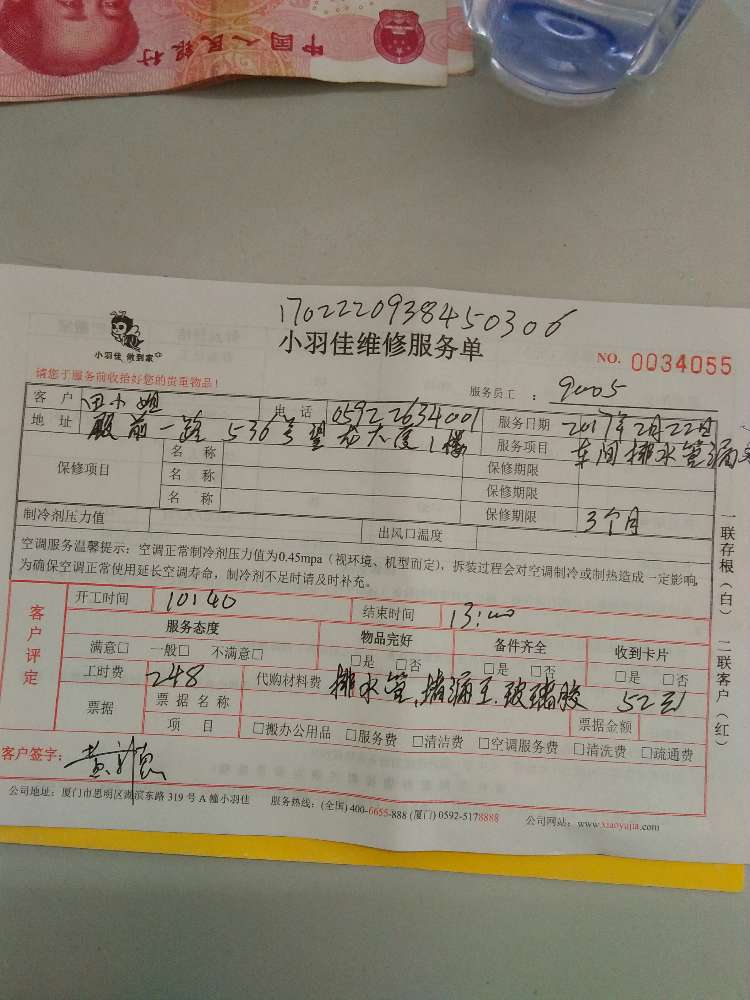 中国人民银行
1702220938450306
小羽佳 做到家
小羽佳维修服务单
NO. 0034055
请您于服务前收拾好您的贵重物品!
服务员工:9005
客户 田小姐 电话 05922634001 服务日期 2017年2月22日
地址 殿前一路536号望龙大厦1楼 服务项目 车间排水管漏水
保修项目 名称 保修期限
名称 保修期限
名称 保修期限 3个月
制冷剂压力值 出风口温度
空调服务温馨提示:空调正常制冷剂压力值为0.45mpa(视环境、机型而定),拆装过程会对空调制冷或制热造成一定影响,
为确保空调正常使用延长空调寿命,制冷剂不足时请及时补充。
客户评定
开工时间 10:40 结束时间 13:00
服务态度 物品完好 备件齐全 收到卡片
满意□ 一般□ 不满意□ □是 □否 □是 □否 □是 □否
工时费 248 代购材料费 排水管、堵漏王、玻璃胶 52元
票据 票据名称 票据金额
项目 □搬办公用品 □服务费 □清洁费 □空调服务费 □清洗费 □疏通费
客户签字:
公司地址:厦门市思明区湖滨东路319号A幢小羽佳 服务热线:(全国)400-6655-888 (厦门)0592-5178888 公司网站:www.xiaoyujia.com
一联存根(白) 二联客户(红)